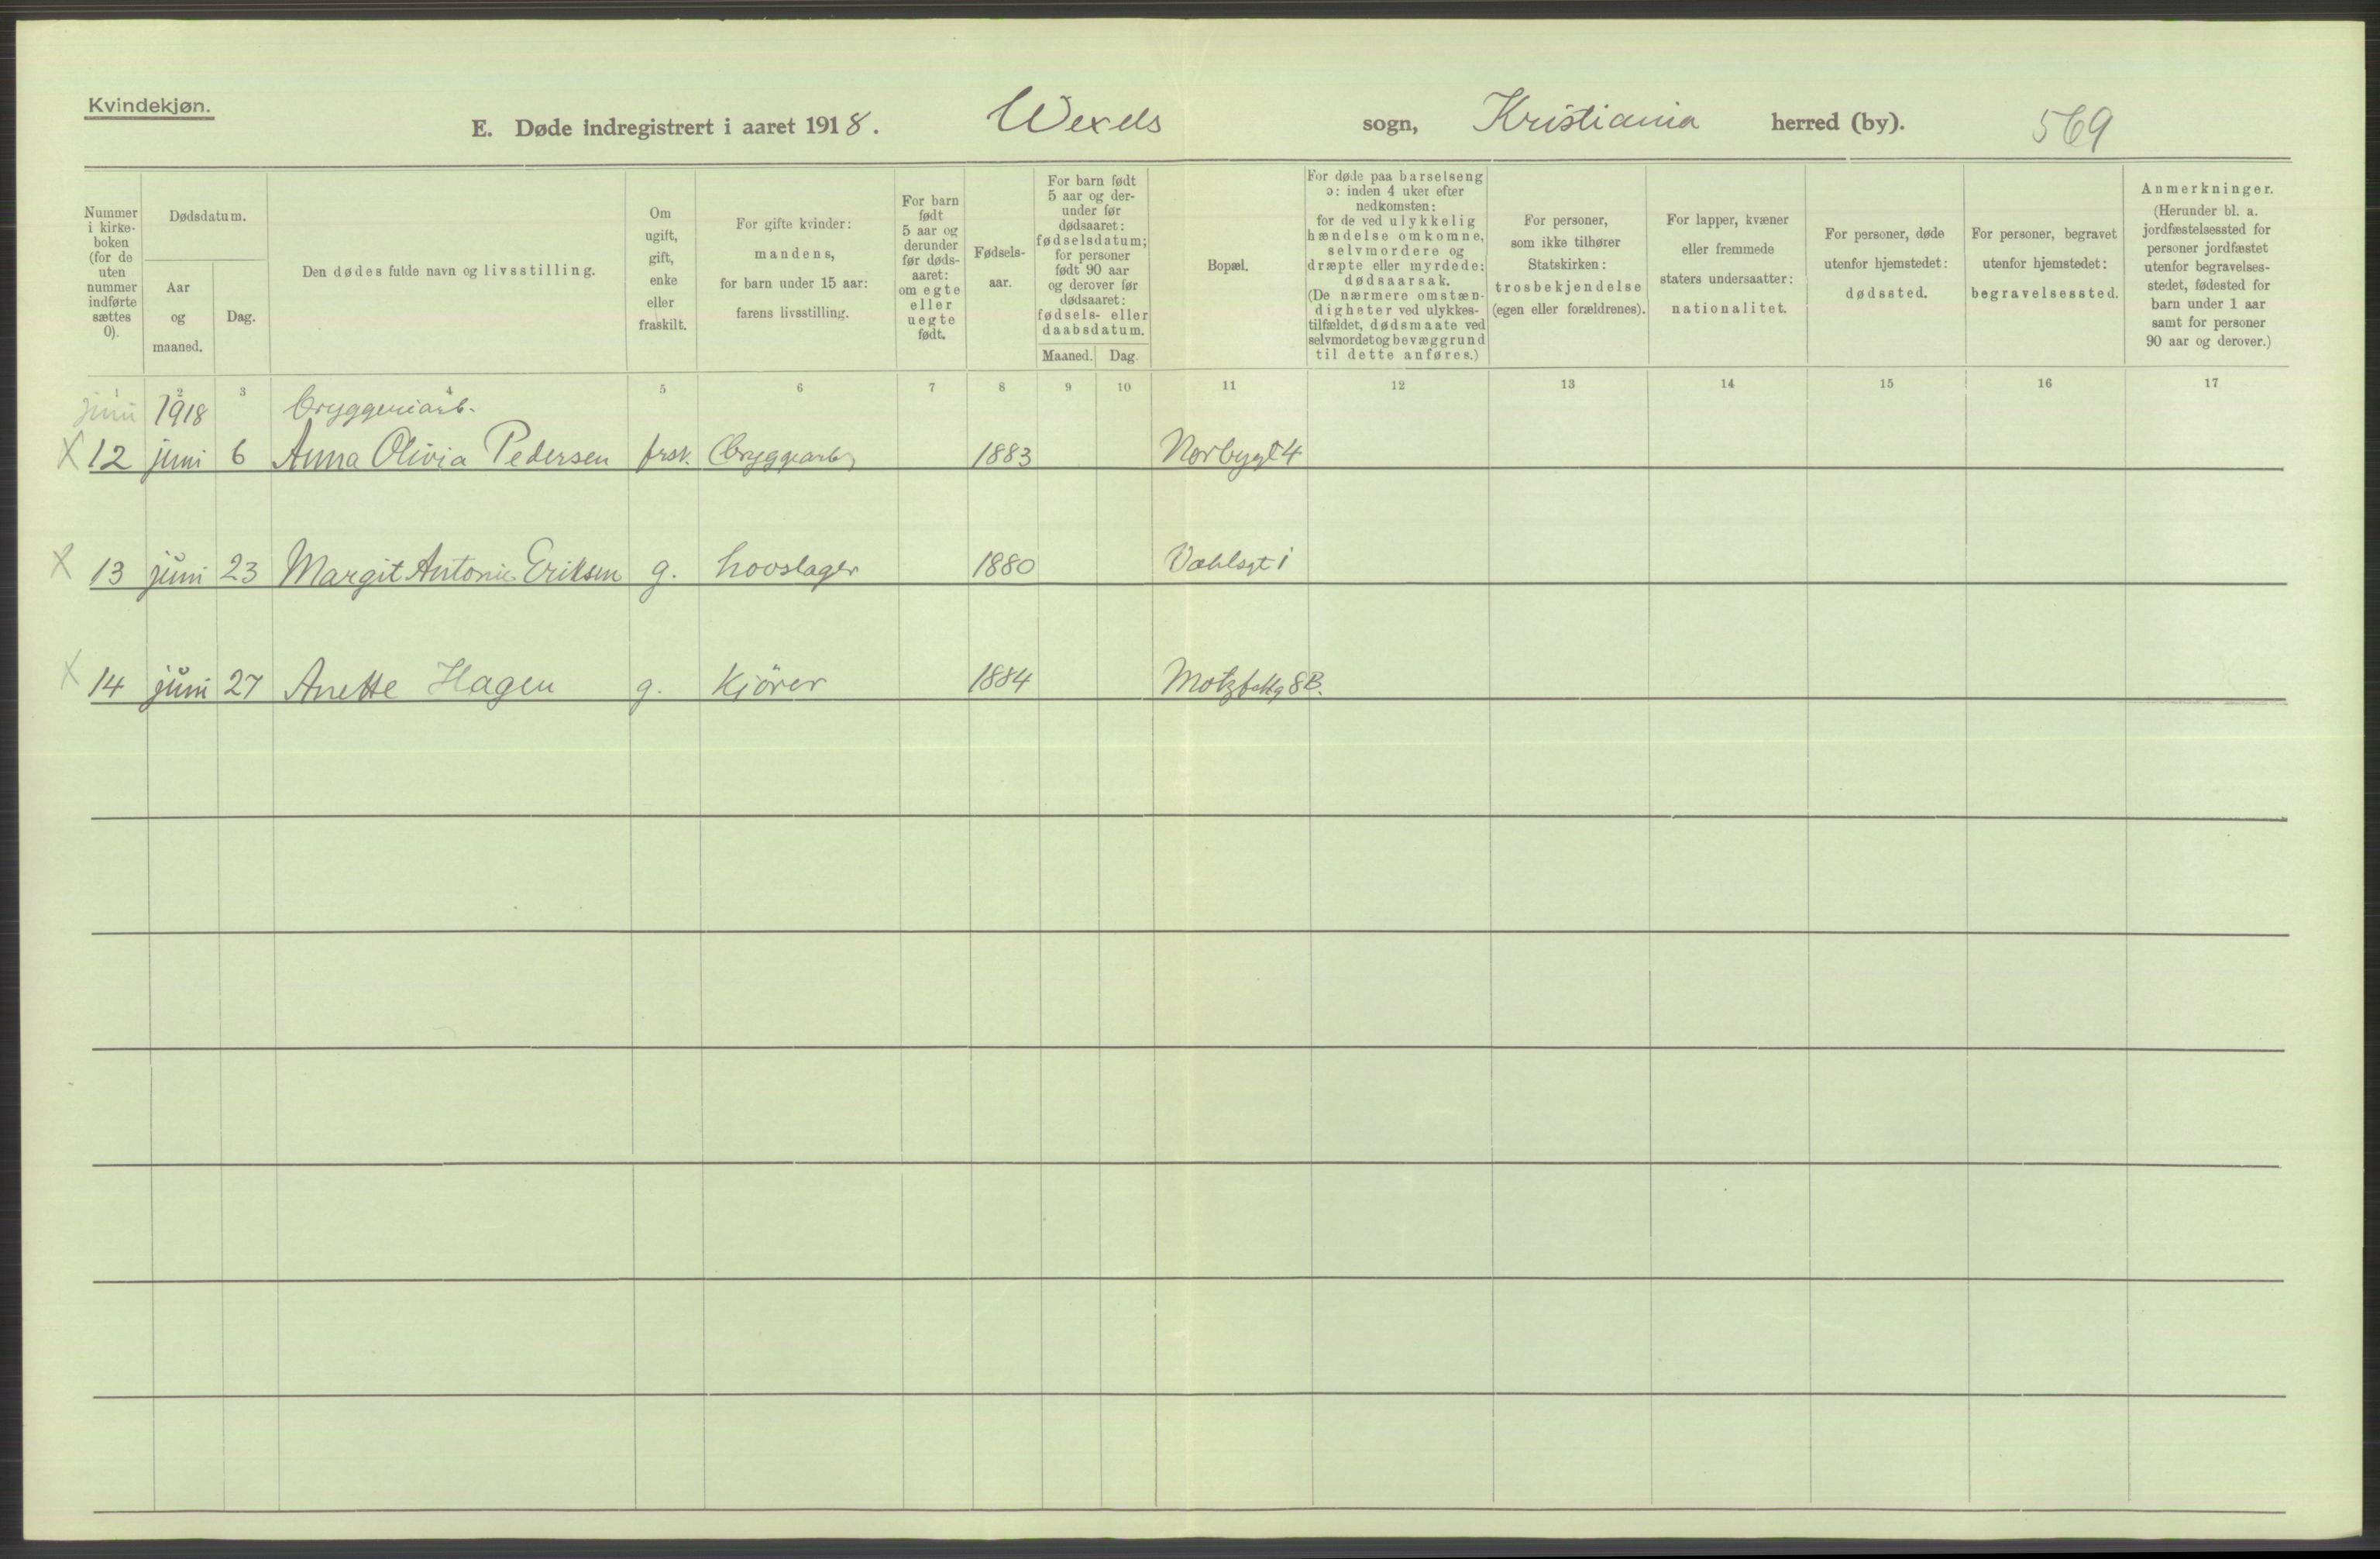 Kvindekjøn.
E. Døde indregistrert i aaret 1918. Wexels sogn, Kristiania herred (by). 569
Nummer
i kirke-
boken
(for de
uten
nummer
indførte
sættes
0).
Dødsdatum.
Aar
og
maaned.
Dag.
Den dødes fulde navn og livsstilling.
Om
ugift,
gift,
enke
eller
fraskilt.
For gifte kvinder:
mandens,
for barn under 15 aar:
farens livsstilling.
For barn
født
5 aar og
derunder
før døds-
aaret:
om egte
eller
uegte
født.
Fødsels-
aar.
For barn født
5 aar og der-
under før
dødsaaret:
fødselsdatum;
for personer
født 90 aar
og derover før
dødsaaret:
fødsels- eller
daabsdatum.
Maaned. Dag.
Bopæl.
For døde paa barselseng
ɔ: inden 4 uker efter
nedkomsten;
for de ved ulykkelig
hændelse omkomne,
selvmordere og
dræpte eller myrdede:
dødsaarsak.
(De nærmere omstæn-
digheter ved ulykkes-
tilfældet, dødsmaate ved
selvmordet og bevæggrund
til dette anføres.)
For personer,
som ikke tilhører
Statskirken:
trosbekjendelse
(egen eller forældrenes).
For lapper, kvæner
eller fremmede
staters undersaatter:
nationalitet.
For personer, døde
utenfor hjemstedet:
dødssted.
For personer, begravet
utenfor hjemstedet:
begravelsessted.
Anmerkninger.
(Herunder bl. a.
jordfæstelsessted for
personer jordfæstet
utenfor begravelses-
stedet, fødested for
barn under 1 aar
samt for personer
90 aar og derover.)
1 2 3 4 5 6 7 8 9 10 11 12 13 14 15 16 17
juni 1918 bryggeriarb.
X 12 juni 6 Anna Olivia Pedersen frsk. bryggiarb 1883 Norbygt 4
X 13 juni 23 Margit Antonie Eriksen g. hovslager 1880 Vahlsgt 1
X 14 juni 27 Anette Hagen g. Kjörer 1884 Motzfeldtg 8B.